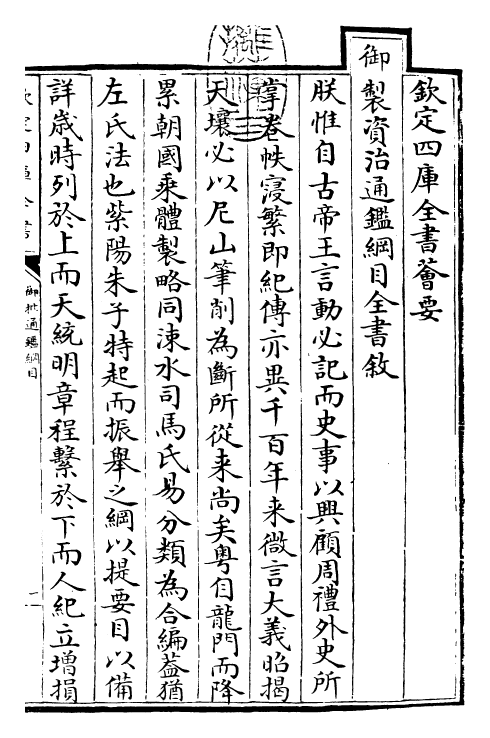 欽定四庫全書薈要
御製資治通鑑綱目全書敘
朕惟自古帝王言動必記而史事以興顧周禮外史所
掌卷帙寖繁即紀傳亦異千百年来微言大義昭揭
天壤必以尼山筆削為斷所從来尚矣粤自龍門而降
累朝國乘體製略同涑水司馬氏易分類為合編葢猶
左氏法也紫陽朱子特起而振舉之綱以提要目以備
詳歳時列於上而天統明章程繫於下而人紀立增損
御批通鑑綱目